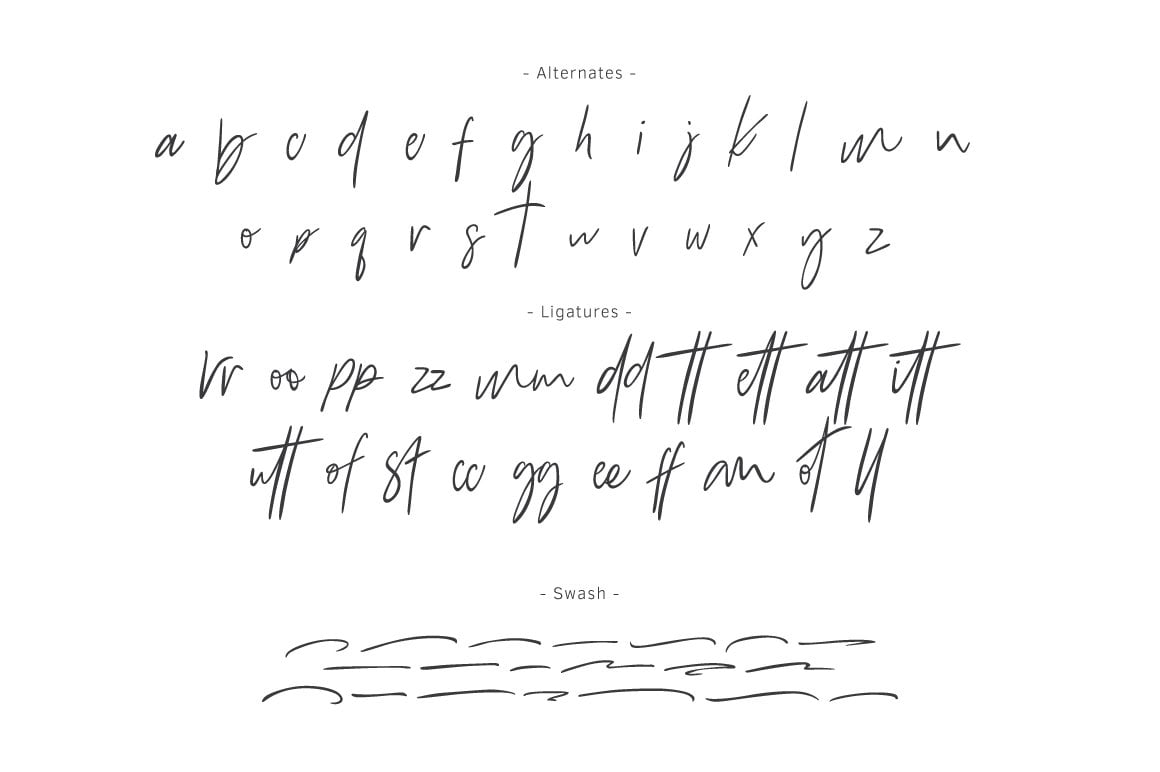 - Alternates -
a b c d e f g h i j k l m n
o p q r s t u v w x y z
- Ligatures -
rr oo pp zz mm dd tt ett att itt
utt of st cc gg ee ff an ot ll
- Swash -